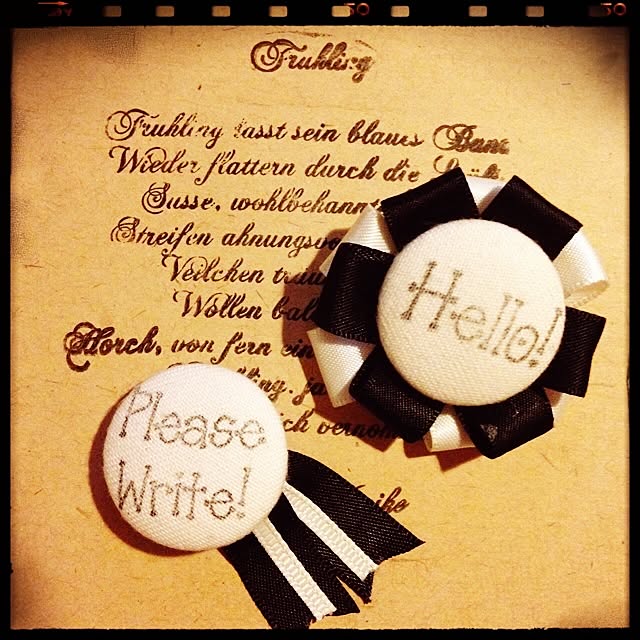 Fruhling
Fruhling lasst sein blaues Band
Wieder flattern durch die
Susse, wohlbekannt
Streifen ahnungsvo
Veilchen
Wollen bal
Horch, von fern ein
ling, ja
ich vernom
rike
Hello!
Please
Write!